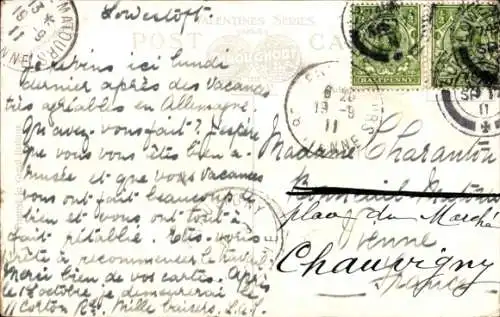 Lowestoft
VALENTINES SERIES
POST CARD
Je revins ici lundi
dernier après des vacances
très agréables en Allemagne.
Qu'avez-vous fait? J'espère
que vous vous êtes bien a-
musée et que vos vacances
vous ont fait beaucoup de
bien et vous ont tout à
fait rétablie. Êtes-vous
prête à recommencer le travail?
Merci bien de vos cartes. Après
le 1 octobre je demeurerai le
11 Corton Rd. Mille baisers.
Madame Charanton
place du Marché
Vienne
Chauvigny
France
HALFPENNY
HALFPENNY
19-9
11
VIENNE